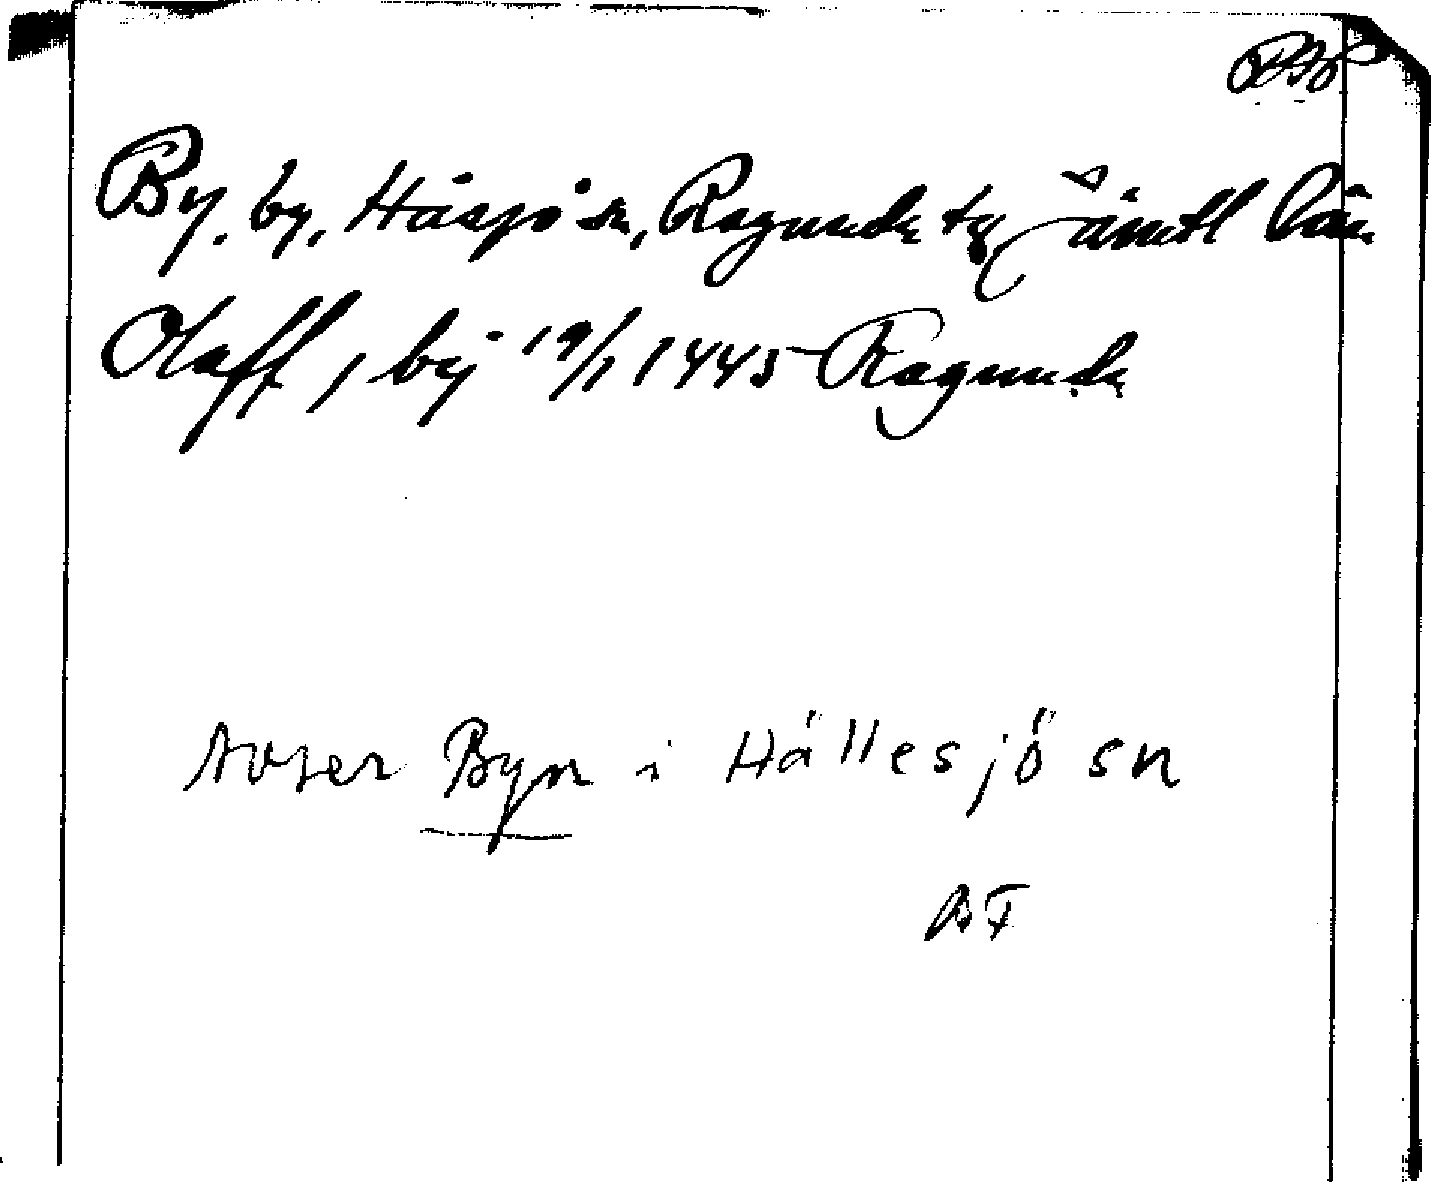 By, by, Håsjö sn, Ragunda tg Jämtl län
Olaff, i bij 19/1 1445 Ragunda
Avser Byn i Hällesjö sn
BF